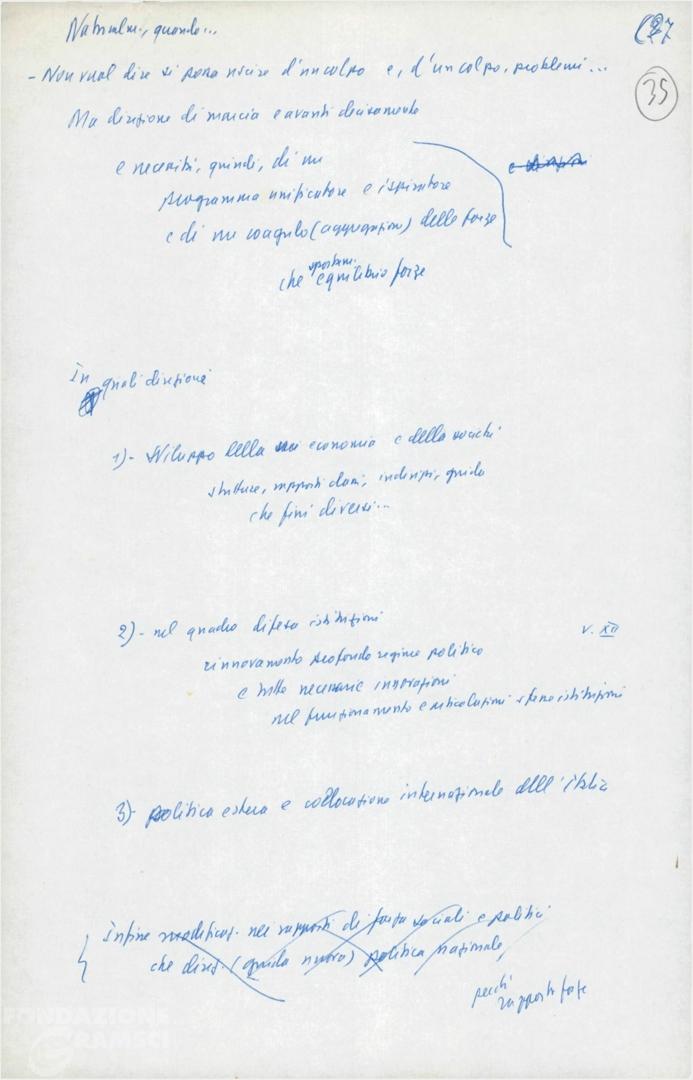 Naturalm., quando...
- Non vuol dire si possa uscire d'un colpo e, d'un colpo, problemi...
35
Ma direzione di marcia e avanti decisamente
e necessità, quindi, di un
programma unificatore e ispiratore
e di un coagulo (aggregazione) delle forze
spostam.
che equilibrio forze
In quali direzioni
1)- Sviluppo della economia e della società
strutture, rapporti classi, indirizzi, guida
che fini diversi...
2)- nel quadro difesa istituzioni
v. XII
rinnovamento profondo regime politico
e tutte necessarie innovazioni
nel funzionamento e articolazioni stesse istituzioni
3)- politica estera e collocazione internazionale dell'Italia
Infine modificaz. nei rapporti di forza sociali e politici
che direz. (guida nuova) politica nazionale,
perchè
rapporti forze
FONDAZIONE
GRAMSCI